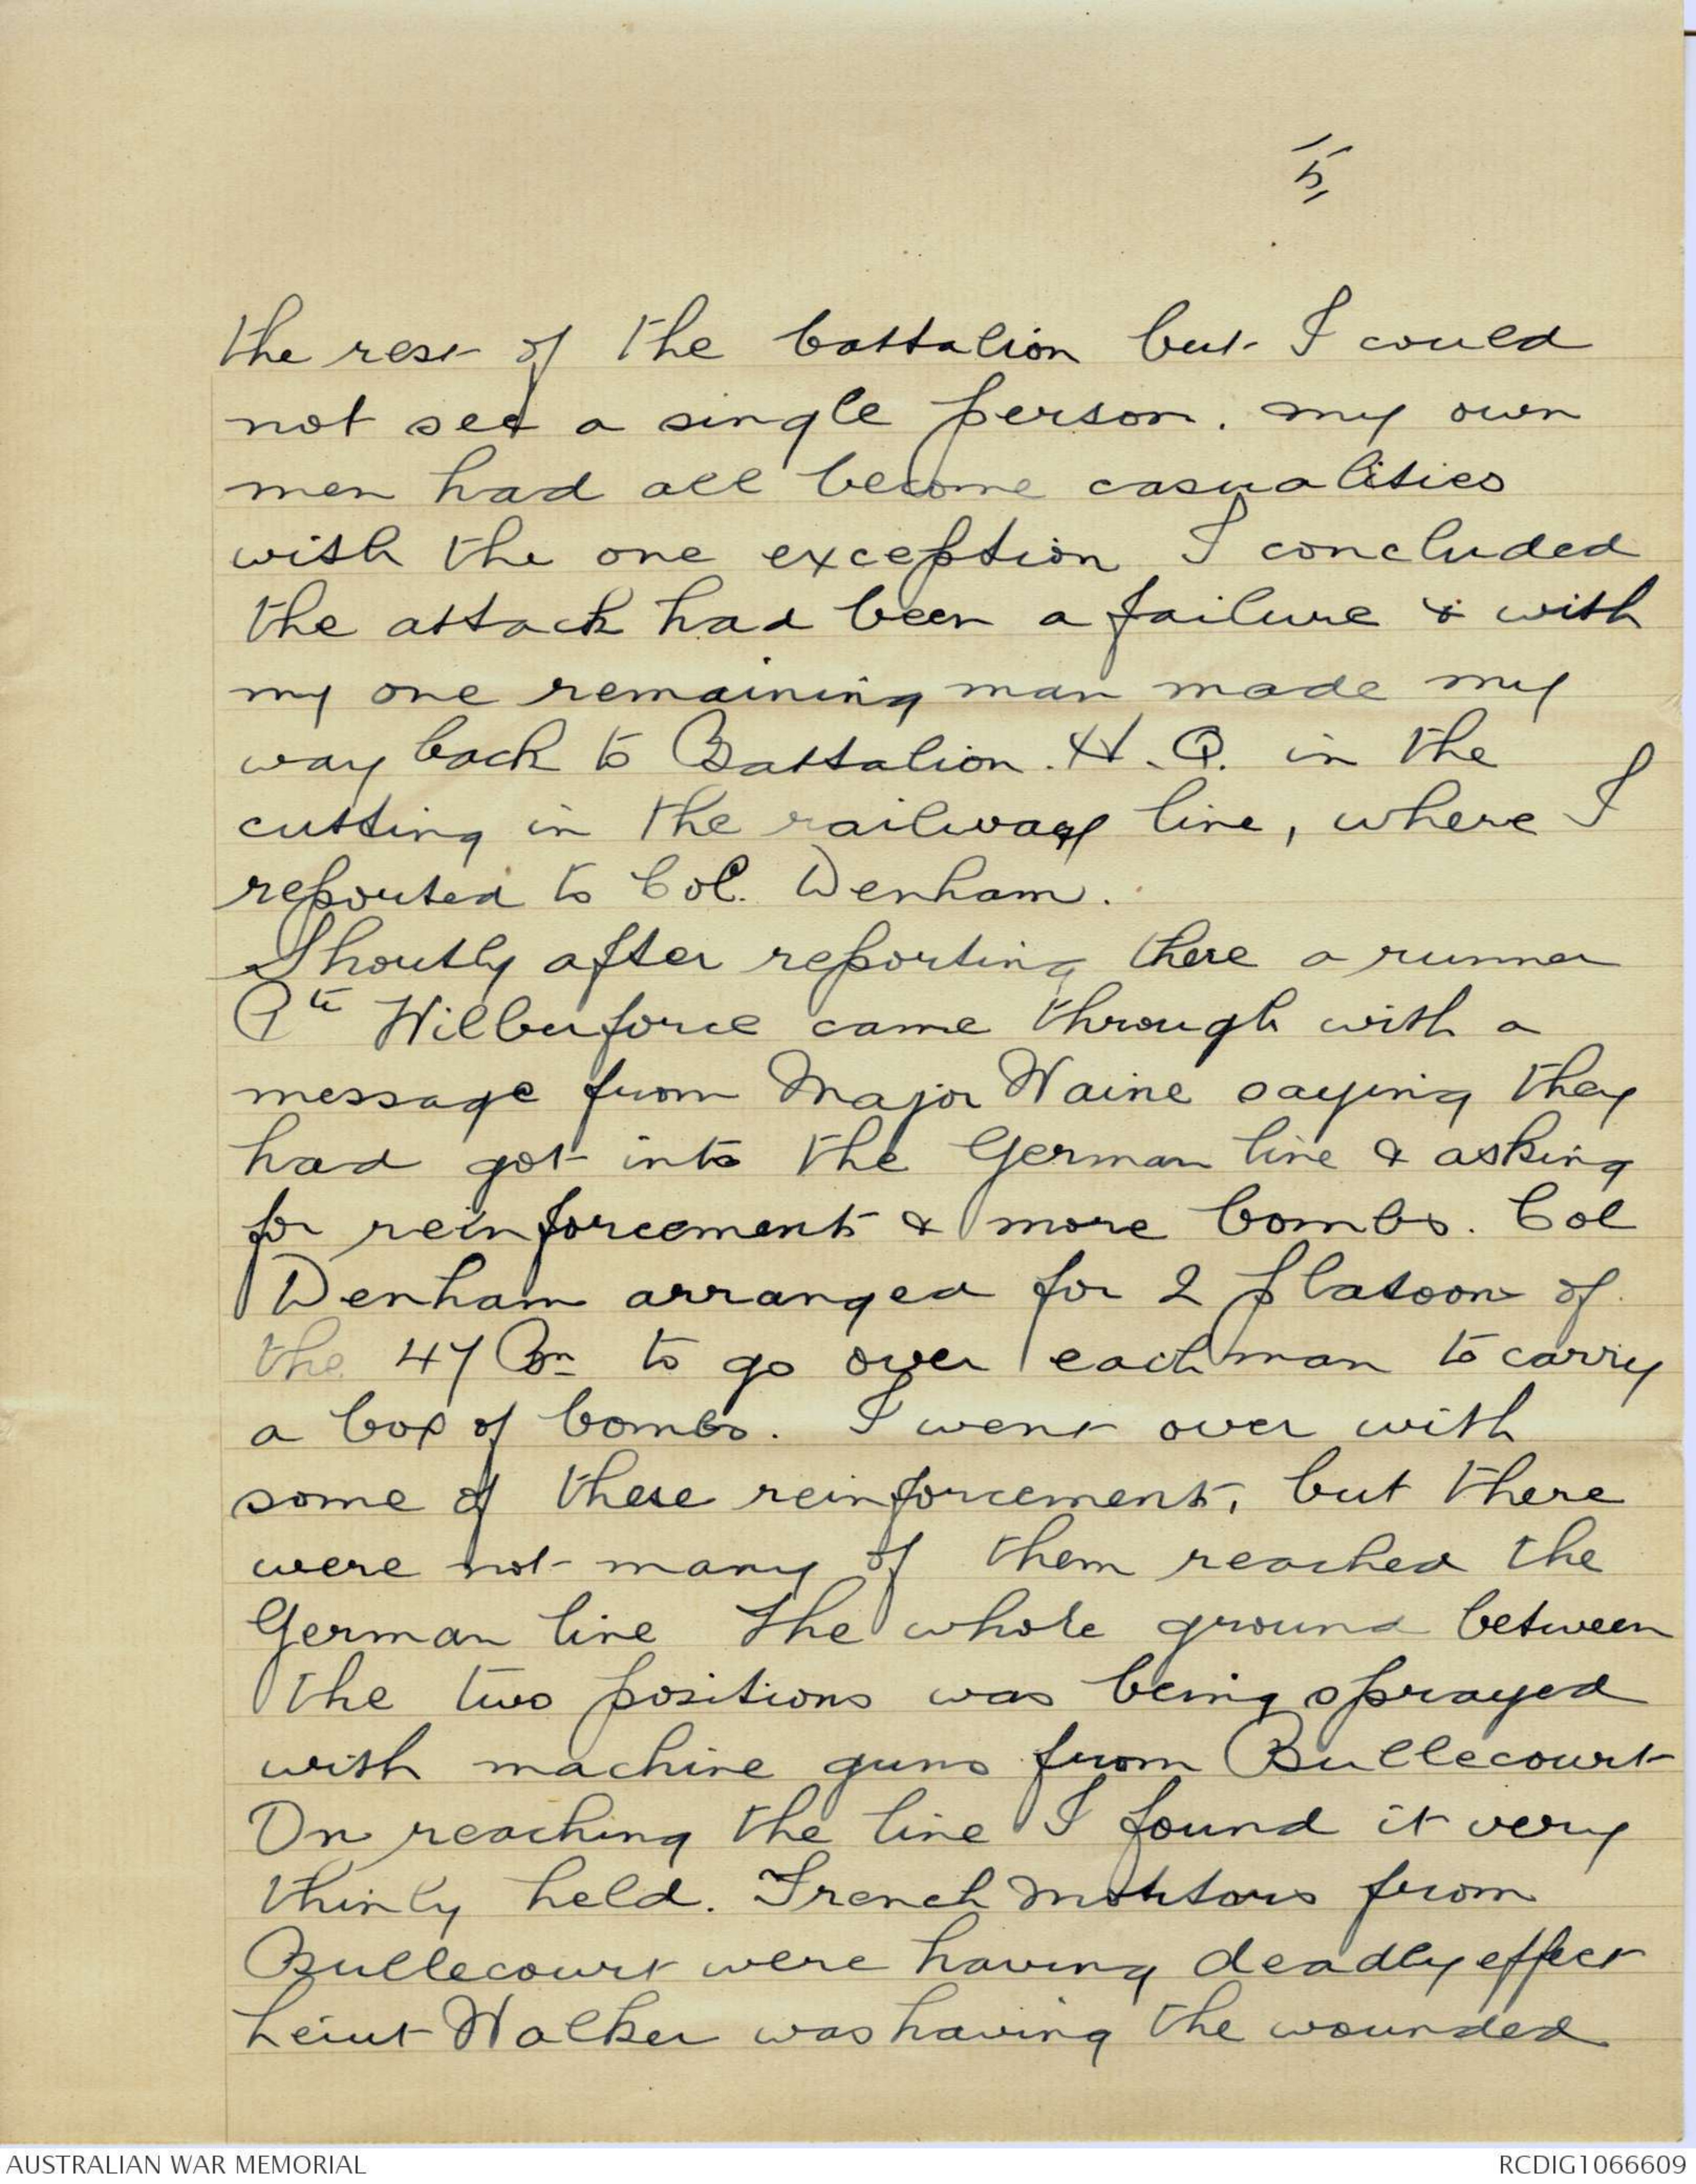 5
the rest of the battalion but I could
not see a single person. my own
men had all become casualities
with the one exception I concluded
the attack had been a failure & with
my one remaining man made my
way back to Battalion. H.Q. in the
cutting in the railway line, where I
reported to Col. Denham.
Shortly after reporting there a runner
Pte Wilberforce came through with a
message from Major Waine saying they
had got into the German line & asking
for reinforcements & more bombs. Col
Denham arranged for 2 platoons of
the 47 Bn to go over each man to carry
a box of bombs. I went over with
some of these reinforcements, but there
were not many of them reached the
German line The whole ground between
the two positions was being sprayed
with machine guns from Bullecourt
On reaching the line I found it very
thinly held. Trench Mortars from
Bullecourt were having deadly effect
Leiut Walker was having the wounded
AUSTRALIAN WAR MEMORIAL
RCDIG1066609